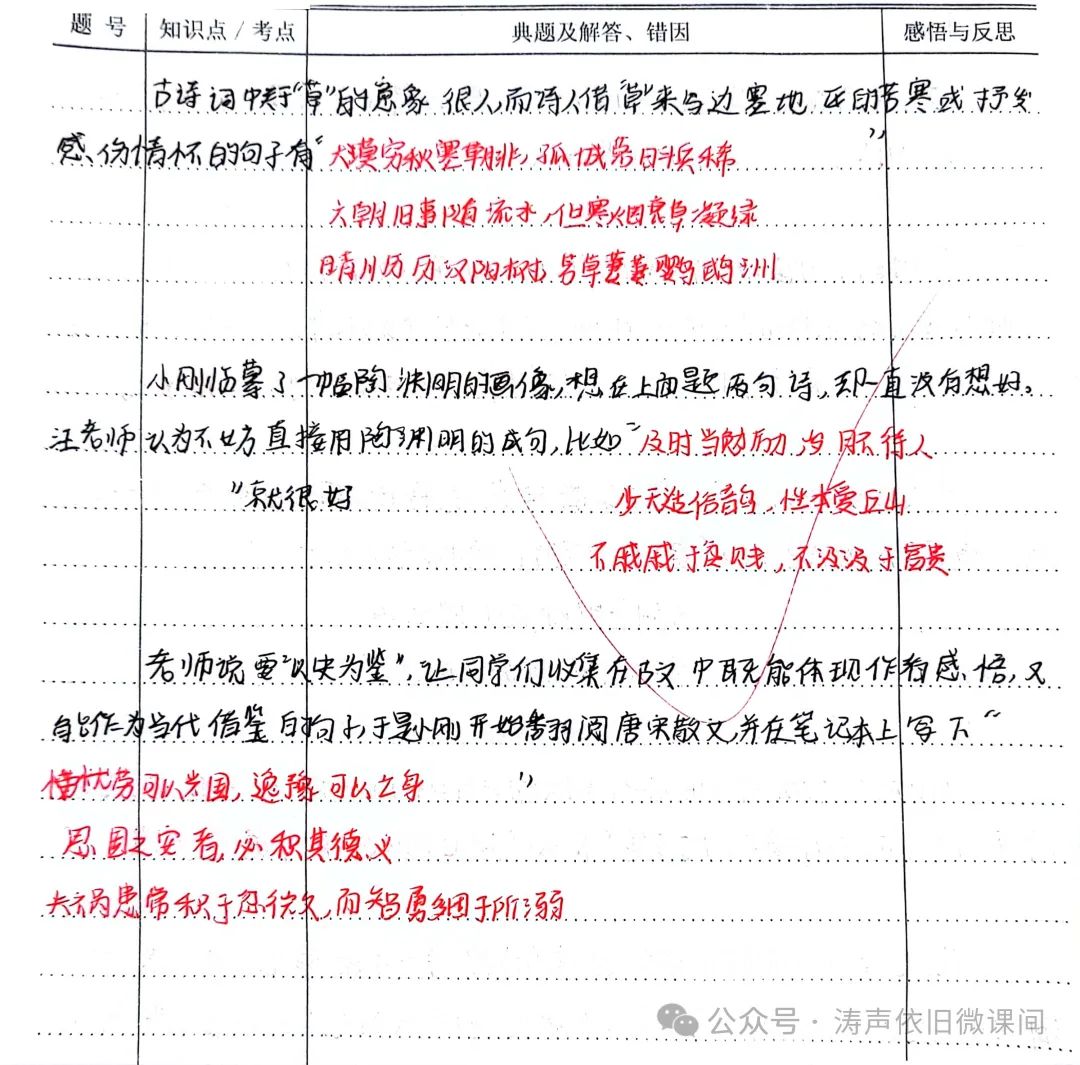 题 号 知识点 / 考点 典题及解答、错因 感悟与反思
古诗词中关于“草”的意象很人,而诗人借“草”来写边塞地 的苦寒或抒发
感伤情怀的句子有“大漠穷秋塞草腓,孤城落日斗兵稀”
六朝旧事随流水,但寒烟衰草凝绿
晴川历历汉阳树,芳草萋萋鹦鹉洲
小刚临摹了一幅陶渊明的画像,想在上面题两句诗,却一直没有想好。
汪老师认为不妨直接用陶渊明的成句,比如“及时当勉励,岁月不待人
”就很好 少无适俗韵,性本爱丘山
不戚戚于贫贱,不汲汲于富贵
老师说要“以史为鉴”,让同学们收集在古文中既能体现作者感悟,又
能作为当代借鉴的句子,于是小刚开始翻阅唐宋散文,并在笔记本上写下“
忧劳可以兴国,逸豫可以亡身 ”
思国之安者,必积其德义
夫祸患常积于忽微,而智勇多困于所溺
公众号·涛声依旧微课间